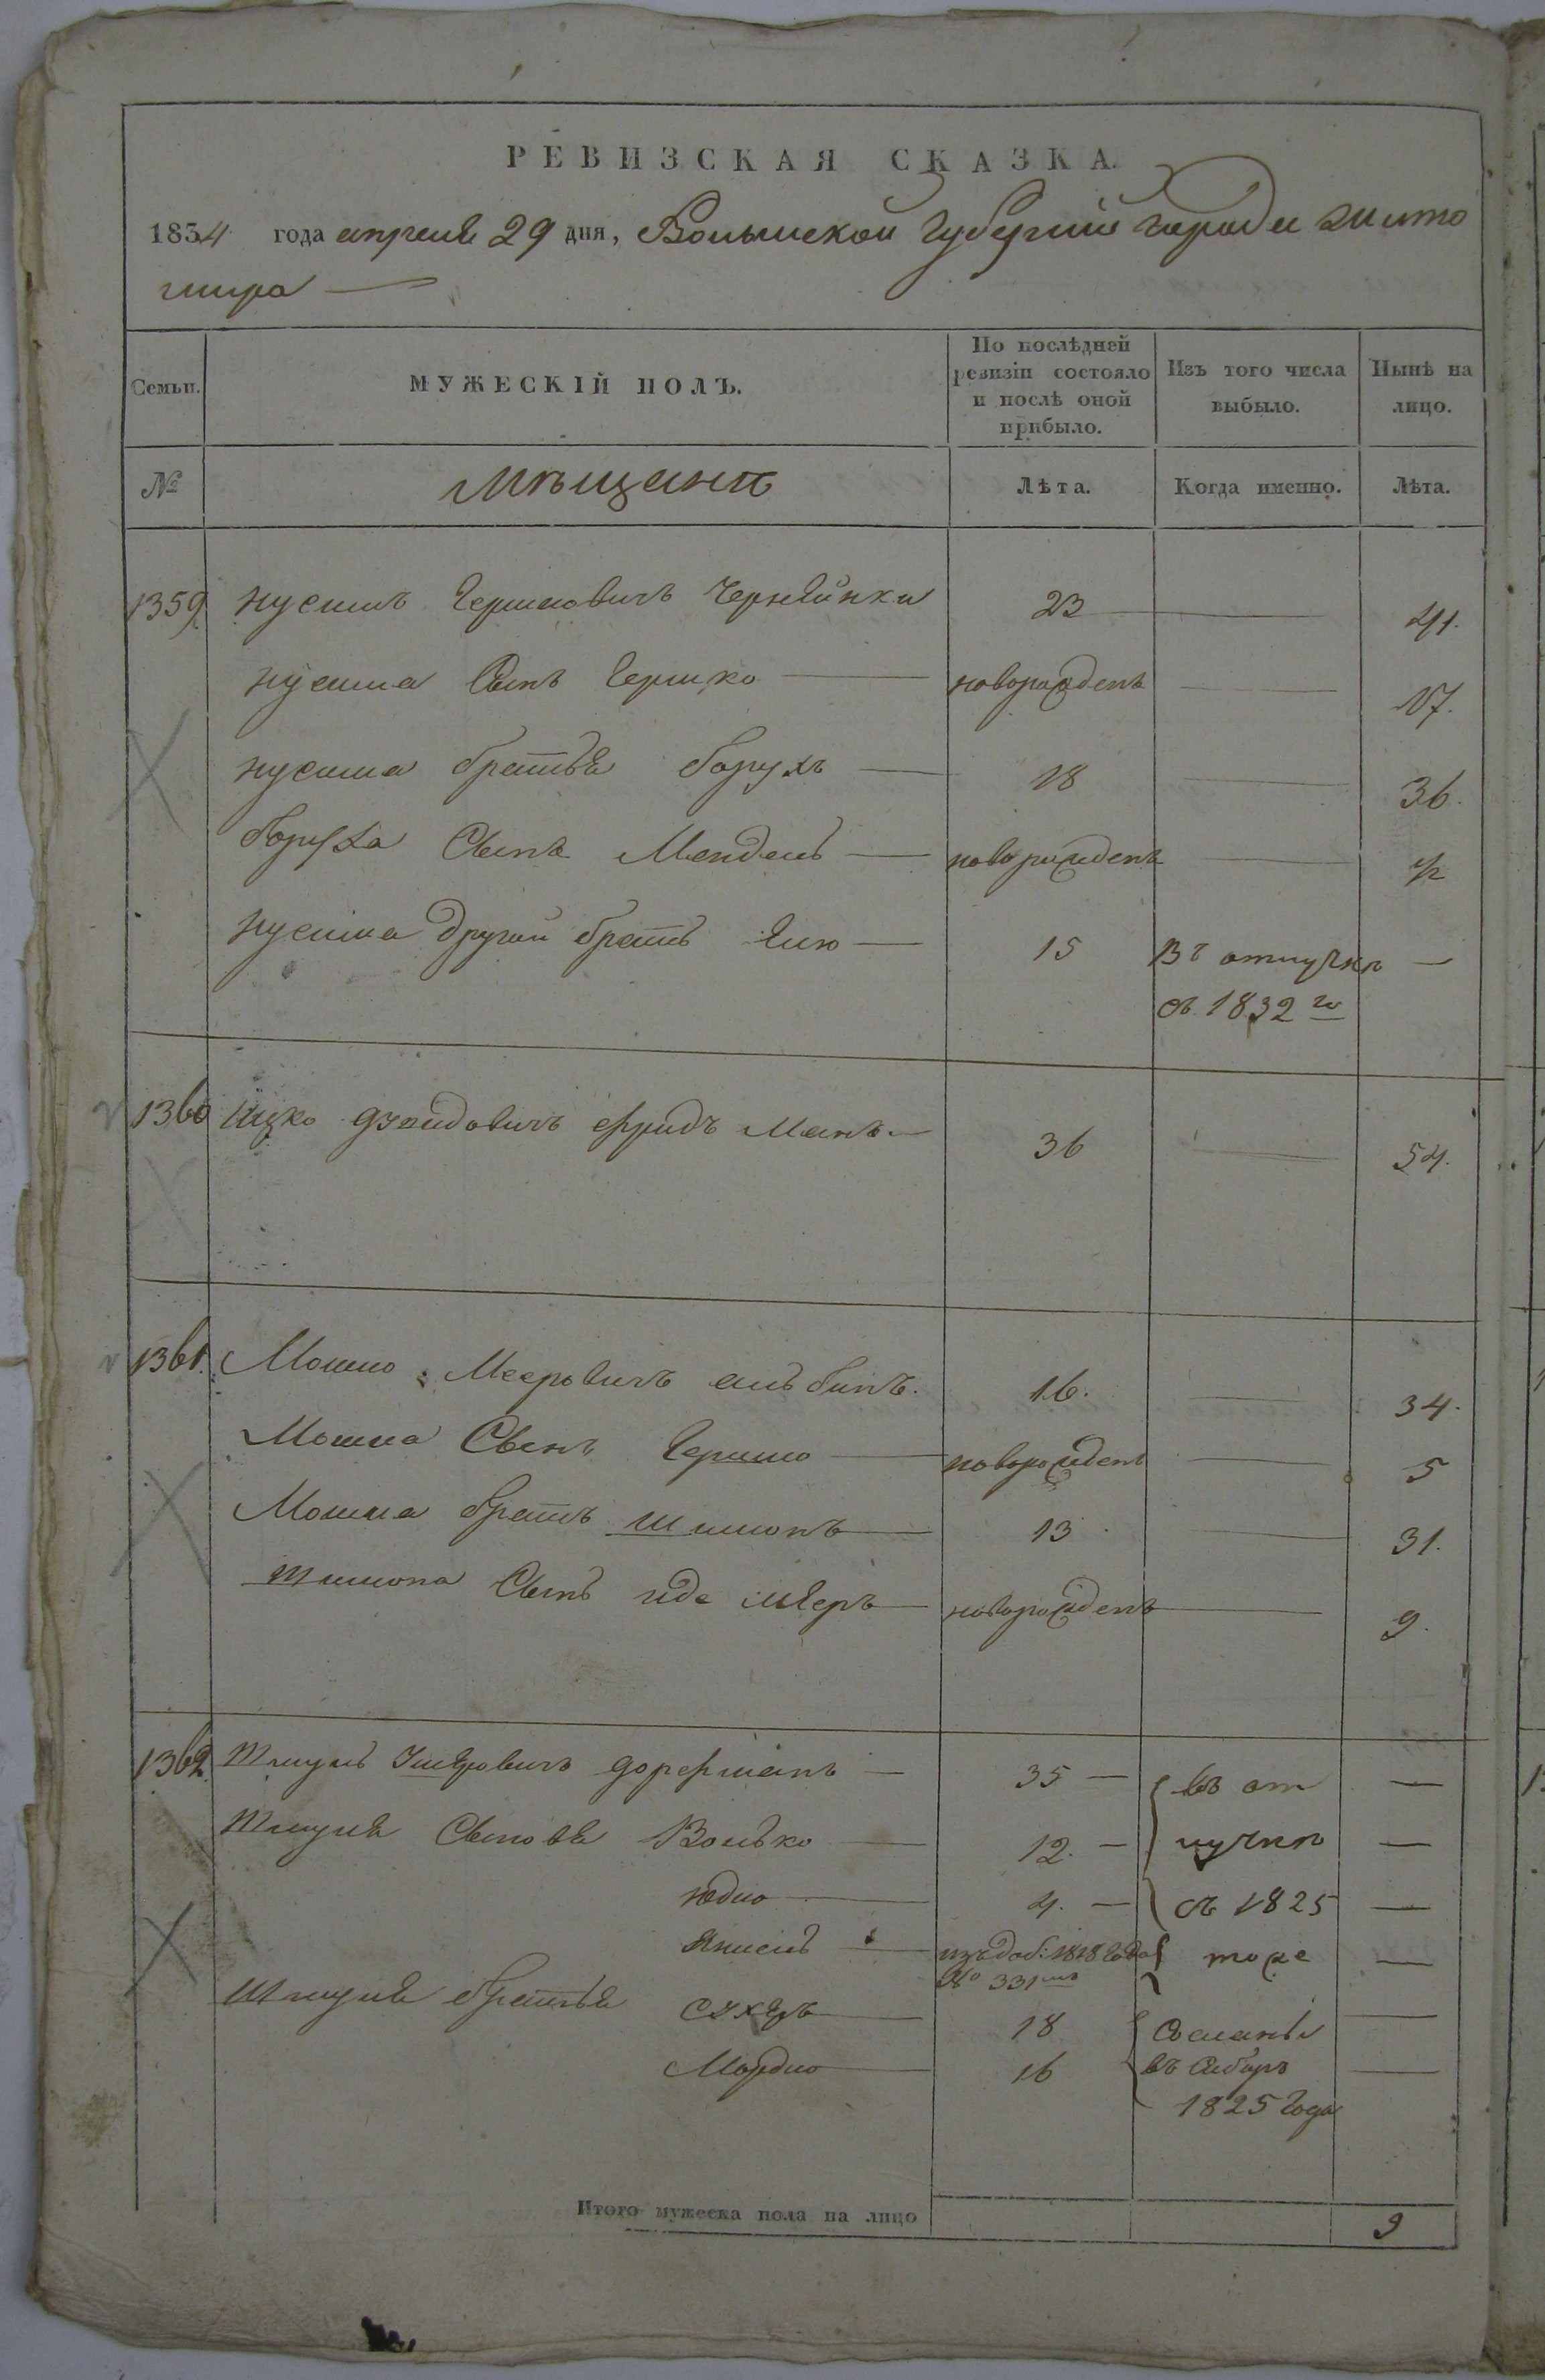 РЕВИЗСКАЯ СКАЗКА.
1834 года апреля 29 дня, Волынской Губернии города Жито
мира
Семьи. МУЖЕСКІЙ ПОЛЪ. По послѣдней ревизіи состояло и послѣ оной прибыло. Изъ того числа выбыло. Нынѣ на лицо.
№ Мѣщанѣ Лѣта. Когда именно. Лѣта.
1359 Нусимъ Гершковичъ 23 41.
Нусима Сынъ Гершко новорожденъ 17.
Нусима братья Борухъ 18 36.
Боруха Сынъ Мендель новорожденъ 1/2
Нусима другой братъ 15 Въ отлучкѣ
съ 1832 го
1360 Ицко Фридъ Манъ 36 54.
1361. Мошко Мееровичъ альбинъ. 16. 34.
Мошка Сынъ Гершко новорожденъ 5
Мошка братъ Шимонъ 13 31.
Шимона Сынъ новорожденъ 9.
1362. Шмуль 35 въ от
Шмуля Сыновья Волько 12. лучкѣ
Юдко 4. съ 1825
Янкель изъ доб: 1818 года тоже
№ 331мъ
Шмуля братья Сухеръ 18 Сосланы
Мордко 16 въ Сибирь
1825 года
Итого мужеска пола на лицо 9